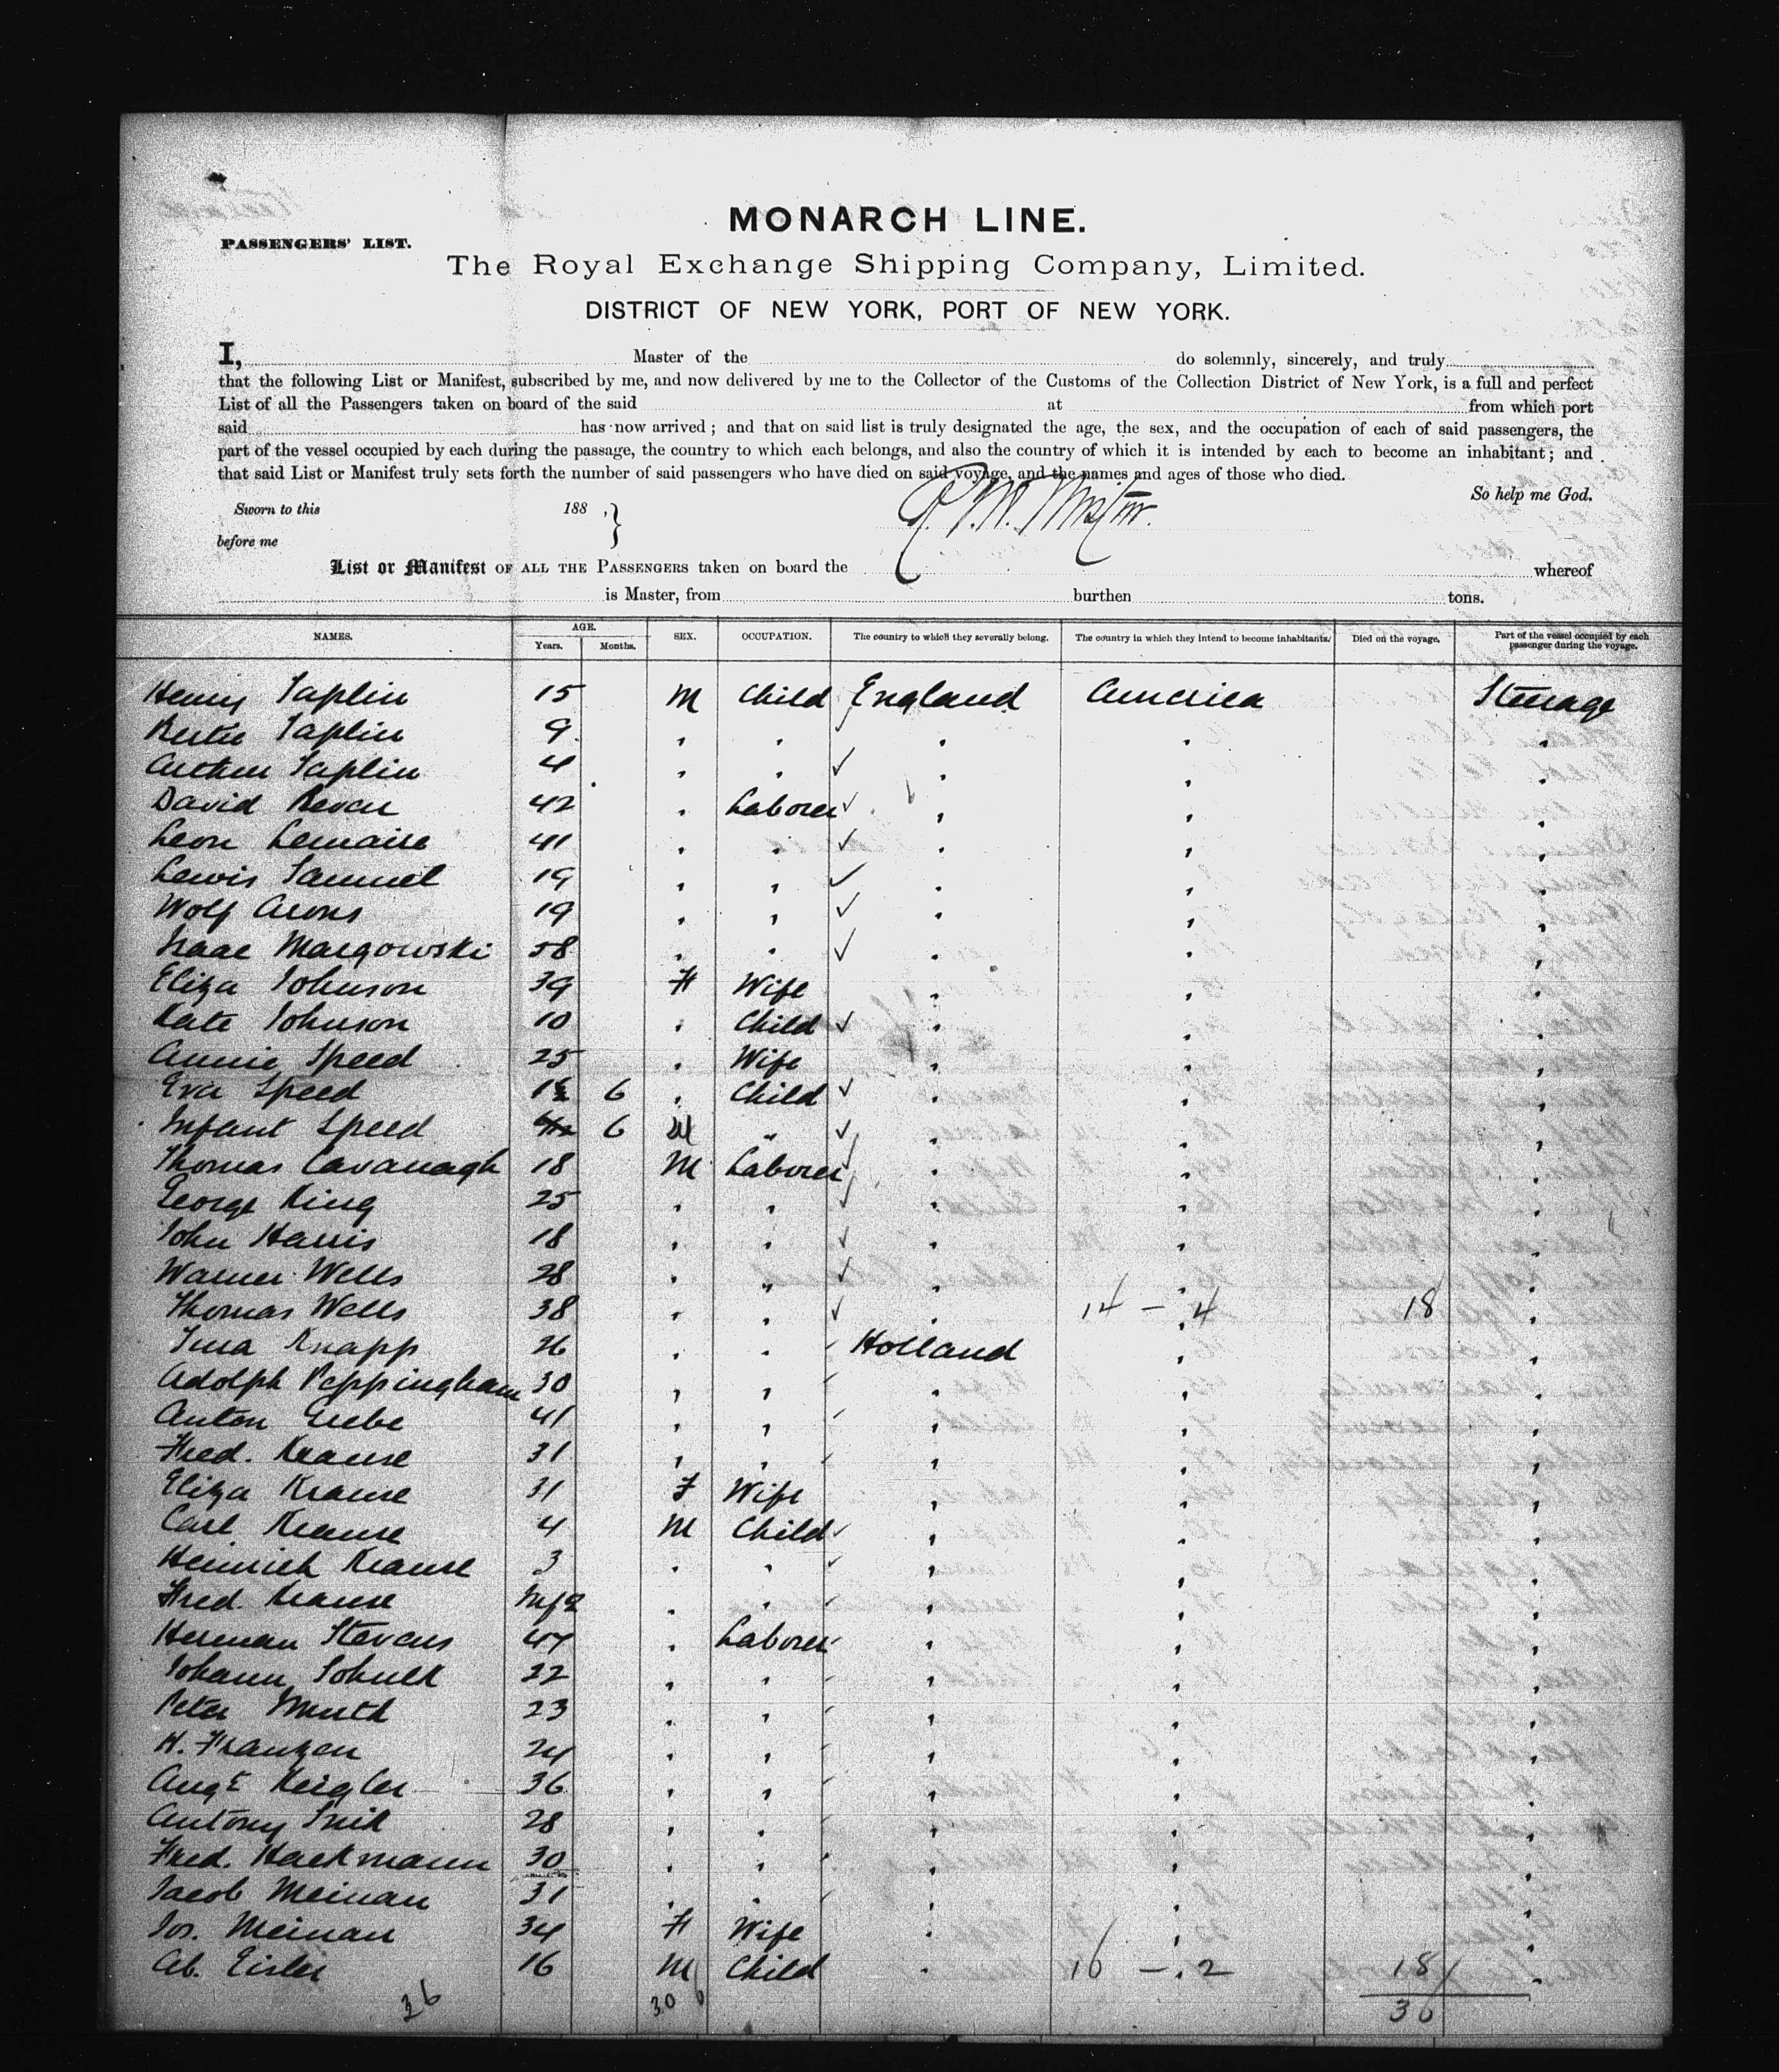 PASSENGERS' LIST.
MONARCH LINE.
The Royal Exchange Shipping Company, Limited.
DISTRICT OF NEW YORK, PORT OF NEW YORK.
I, Master of the do solemnly, sincerely, and truly
that the following List or Manifest, subscribed by me, and now delivered by me to the Collector of the Customs of the Collection District of New York, is a full and perfect
List of all the Passengers taken on board of the said at from which port
said has now arrived; and that on said list is truly designated the age, the sex, and the occupation of each of said passengers, the
part of the vessel occupied by each during the passage, the country to which each belongs, and also the country of which it is intended by each to become an inhabitant; and
that said List or Manifest truly sets forth the number of said passengers who have died on said voyage, and the names and ages of those who died.
So help me God.
Sworn to this 188 ,
before me
List or Manifest OF ALL THE PASSENGERS taken on board the whereof
is Master, from burthen tons.
NAMES. AGE. Years. Months. SEX. OCCUPATION. The country to which they severally belong. The country in which they intend to become inhabitants. Died on the voyage. Part of the vessel occupied by each passenger during the voyage.
Henry Taplin 15 M Child England America Steerage
Bertie Taplin 9 " " " " "
Arthur Taplin 4 " " " " "
David Bevan 42 " Laborer " " "
Leon Lemaire 41 " " " " "
Lewis Samuel 19 " " " " "
Wolf Arons 19 " " " " "
Isaac Margowski 58 " " " " "
Eliza Johnson 39 F Wife " " "
Kate Johnson 10 " Child " " "
Annie Speed 25 " Wife " " "
Eva Speed 6 " Child " " "
Infant Speed 6 M " " " "
Thomas Cavanagh 18 M Laborer " " "
George King 25 " " " " "
John Harris 18 " " " " "
Warner Wells 28 " " " " "
Thomas Wells 38 " " " 14 - 4 18 "
Knapp 26 " " Holland " "
Adolph Peppingham 30 " " " " "
Anton 41 " " " " "
Fred. Krause 31 " " " " "
Eliza Krause 31 F Wife " " "
Carl Krause 4 M Child " " "
Heinrich Krause 3 " " " " "
Fred. Krause " " " " "
Herman Stevens 47 " Laborer " " "
Johann 22 " " " " "
Peter 23 " " " " "
H. Franzen 24 " " " " "
Augt Keigler 36 " " " " "
Antony 28 " " " " "
Fred. Hackmann 30 " " " " "
Jacob Meinan 31 " " " " "
Jos. Meinan 34 F Wife " " "
Ab. Eisler 16 M Child " 16 - 2 18 "
36 30 6 36